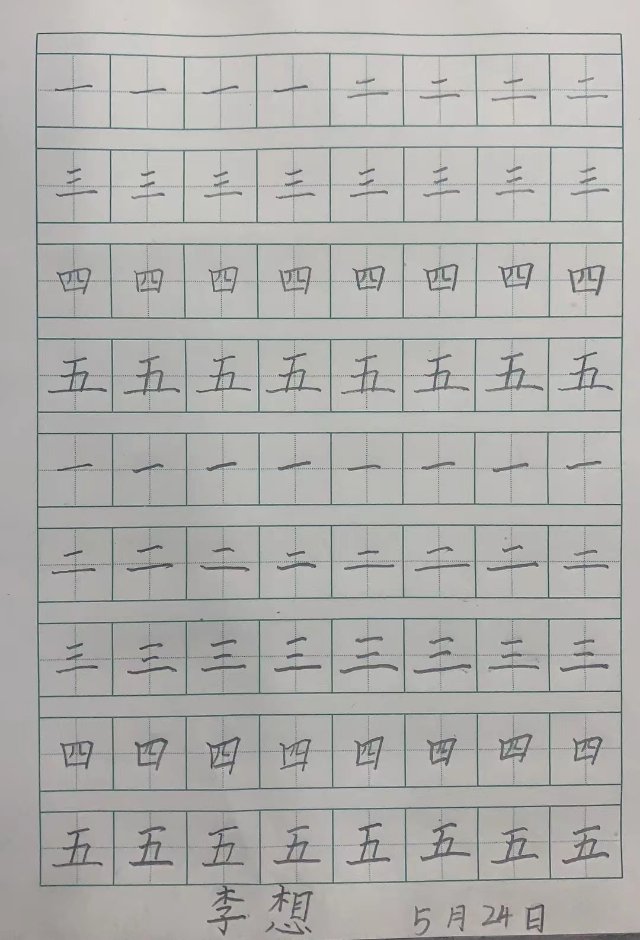 一 一 一 一 二 二 二 二
三 三 三 三 三 三 三 三
四 四 四 四 四 四 四 四
五 五 五 五 五 五 五 五
一 一 一 一 一 一 一 一
二 二 二 二 二 二 二 二
三 三 三 三 三 三 三 三
四 四 四 四 四 四 四 四
五 五 五 五 五 五 五 五
李想 5月24日